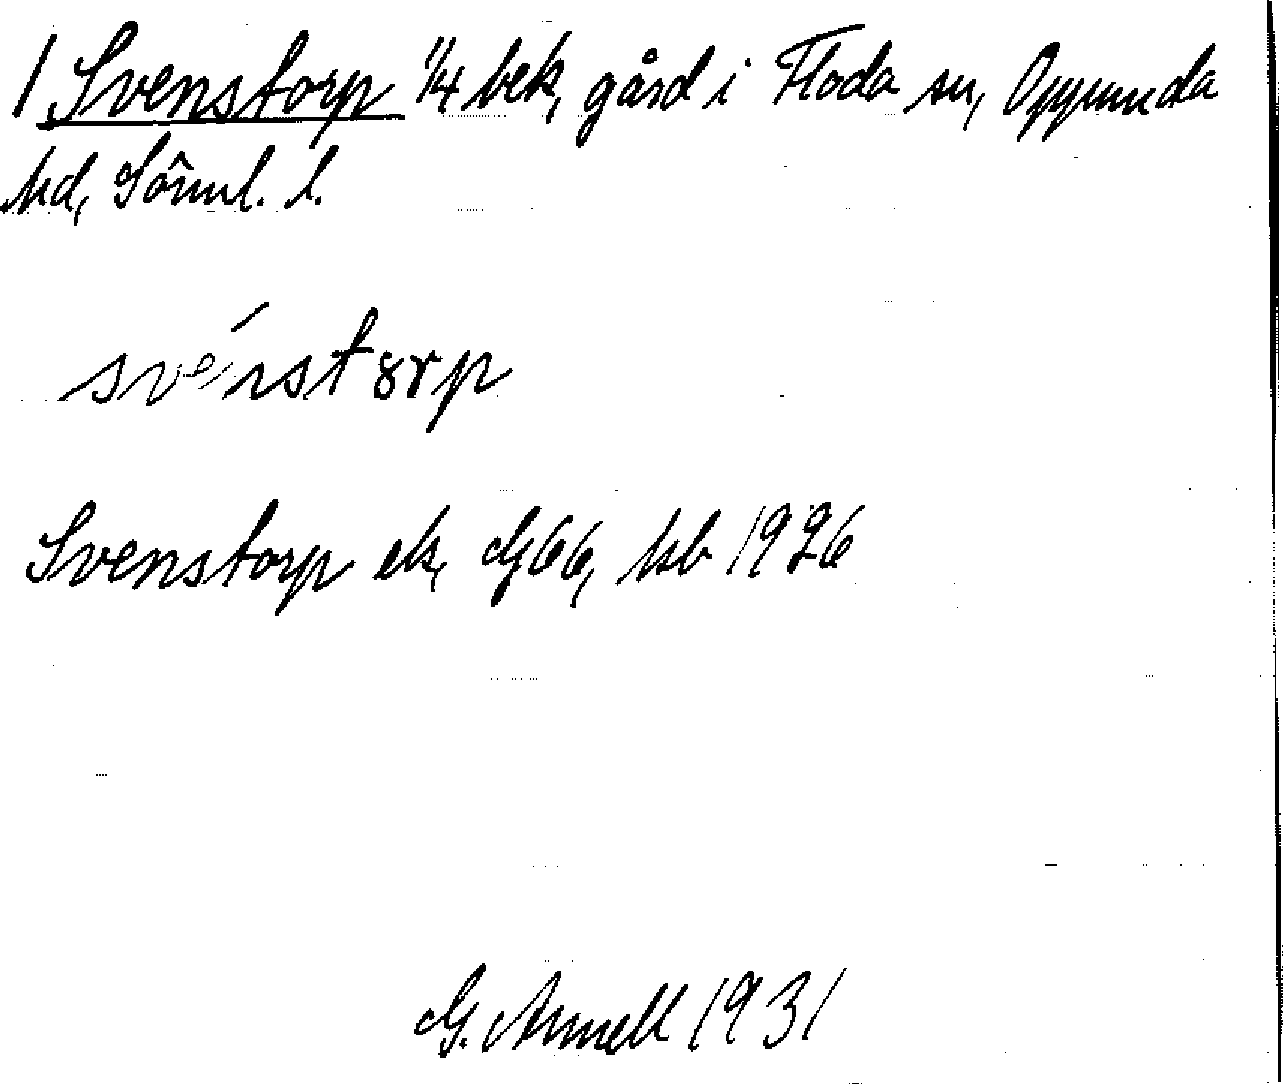 1 Svenstorp 1/4 bek, gård i Floda sn, Oppunda
hd, Sörml. l.
svénstørp
Svenstorp ek, G66, hb 1926
G. Annell 1931